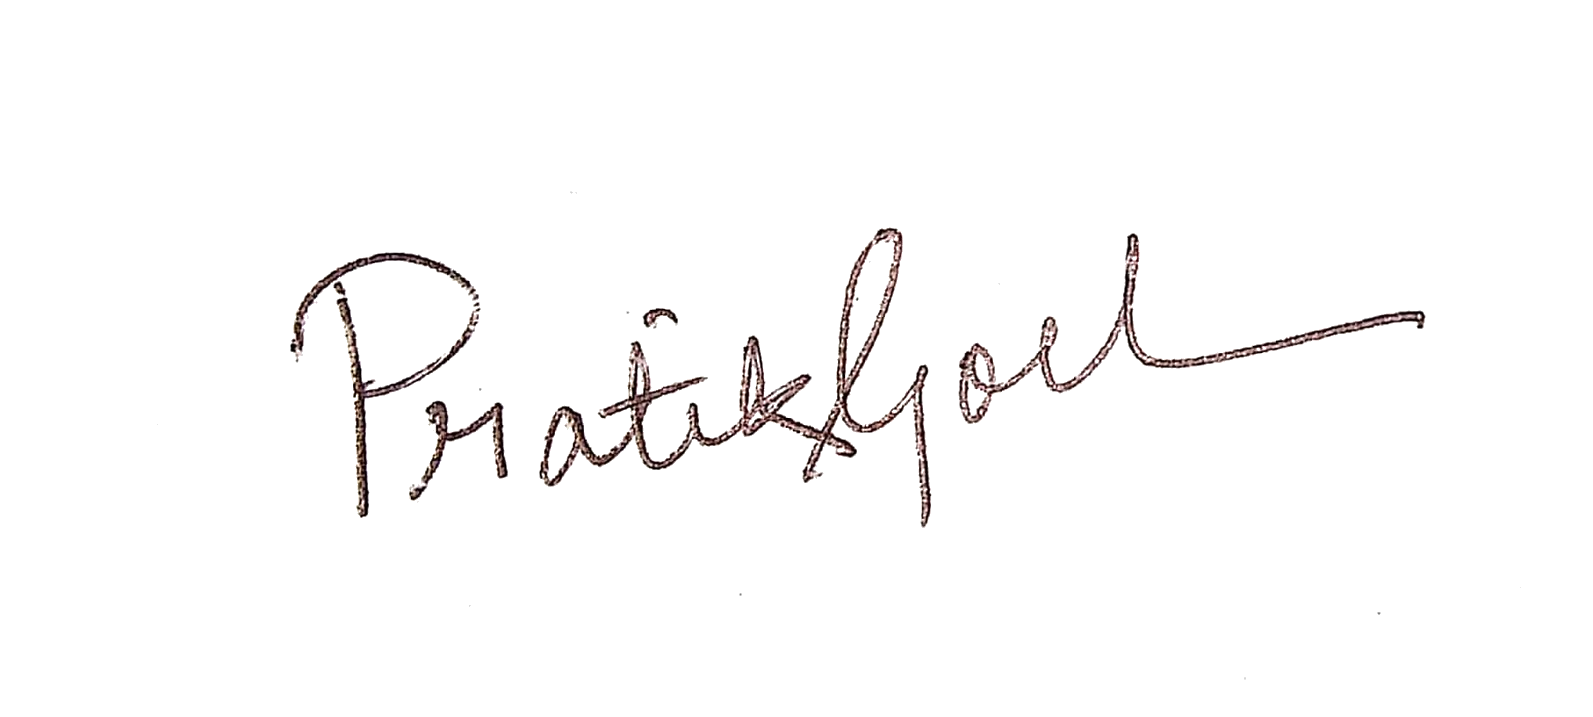 Pratik Goel